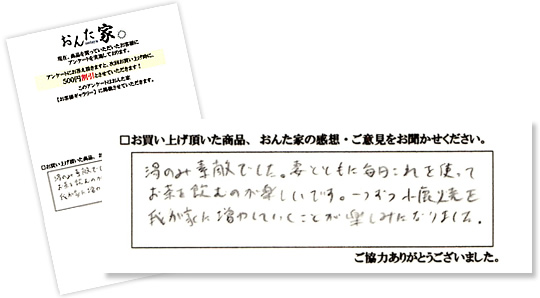 おんた家。
現在、商品を買っていただいたお客様に
アンケートを実施しております。
アンケートにお答え頂きますと、次回お買い上げ時に、
500円割引とさせていただきます!
このアンケートはおんた家
【お客様ギャラリー】に掲載させていただきます。
□お買い上げ頂いた商品、お
湯のみ素敵でした。妻と
お茶を飲むのが
我が家に増や
□お買い上げ頂いた商品、おんた家の感想・ご意見をお聞かせください。
湯のみ素敵でした。妻とともに毎日これを使って
お茶を飲むのが楽しいです。一つずつ小鹿田焼を
我が家に増やしていくことが楽しみになりました。
ご協力ありがとうございました。